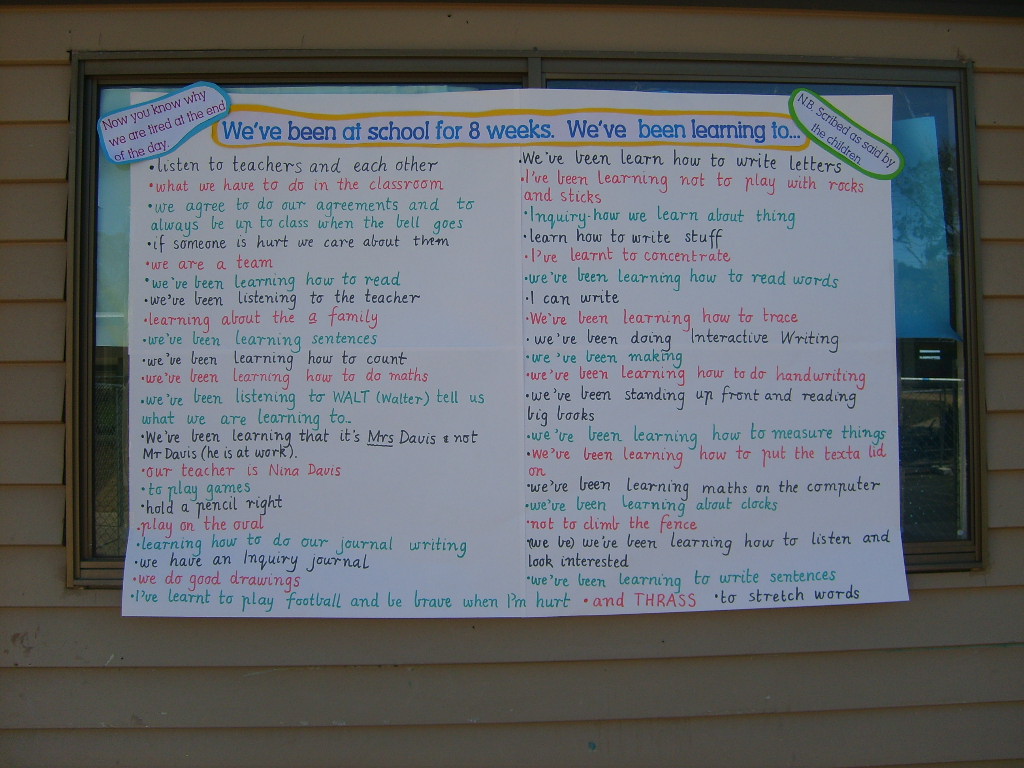 Now you know why
we are tired at the end
of the day.
We've been at school for 8 weeks. We've been learning to...
N.B. Scribed as said by
the children
•listen to teachers and each other
•what we have to do in the classroom
•we agree to do our agreements and to
always be up to class when the bell goes
•if someone is hurt we care about them
•we are a team
•we've been learning how to read
•we've been listening to the teacher
•learning about the a family
•we've been learning sentences
•we've been learning how to count
•we've been learning how to do maths
•we've been listening to WALT (Walter) tell us
what we are learning to...
•We've been learning that it's Mrs Davis & not
Mr Davis (he is at work).
•our teacher is Nina Davis
•to play games
•hold a pencil right
•play on the oval
•learning how to do our journal writing
•we have an Inquiry journal
•we do good drawings
•I've learnt to play football and be brave when I'm hurt •and THRASS •to stretch words
•We've been learn how to write letters
•I've been learning not to play with rocks
and sticks
•Inquiry-how we learn about thing
•learn how to write stuff
•I've learnt to concentrate
•we've been learning how to read words
•I can write
•We've been learning how to trace
•we've been doing Interactive Writing
•we've been making
•we've been learning how to do handwriting
•we've been standing up front and reading
big books
•we've been learning how to measure things
•We've been learning how to put the texta lid
on
•we've been learning maths on the computer
•we've been learning about clocks
•not to climb the fence
•we be) we've been learning how to listen and
look interested
•we've been learning to write sentences